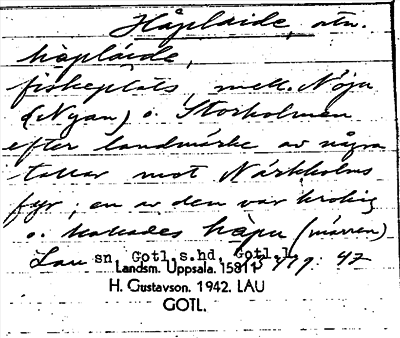 Håplaide, utn.
håplaide,
fiskeplats, mell. Nöju
(Nyan) o. Storholmen
efter landmärke av några
tallar mot Närkholms
fyr; en av dem var krokig
o. kallades håpu (märren)
Lau sn Gotl.s.hd, Gotl.l
Landsm. Uppsala. 15811 : 47
H. Gustavson. 1942. LAU
GOTL.